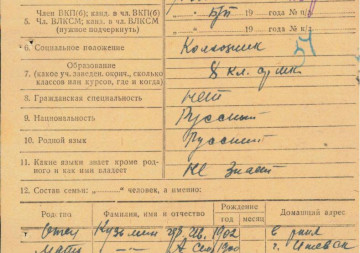 Член ВКП(б); канд. в чл. ВКП(б)
5. Чл. ВЛКСМ; канд. в чл. ВЛКСМ б/п 19 года № п/
(нужное подчеркнуть) 19 года № к/
6. Социальное положение Колхозник
Образование
7. (какое уч. заведен. окрич., сколько 8 кл.
классов или курсов, где и когда)
8. Гражданская специальность нет
9. Национальность Русский
10. Родной язык Русский
11. Какие языки знает кроме род-
ного и как ими владеет не знает
12. Состав семьи: „ “ человек, а именно:
Родство Фамилия, имя и отчество Рождение Домашний адрес
год месяц
Отец 1902
Мать 1900 г. Ижевск